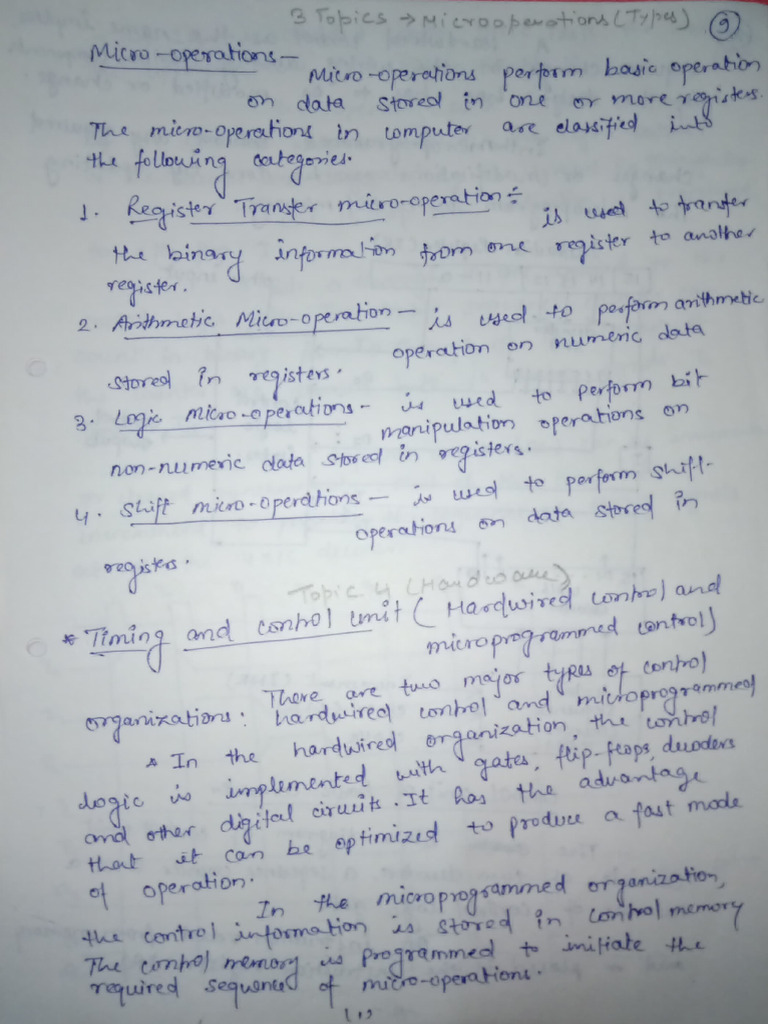 3 Topics → Microoperations (Types) 9
Micro-operations -
Micro-operations perform basic operation
on data stored in one or more registers.
The micro-operations in computer are classified into
the following categories.
1. Register Transfer micro-operation:- is used to transfer
the binary information from one register to another
register.
2. Arithmetic Micro-operation - is used to perform arithmetic
operation on numeric data
stored in registers.
3. Logic micro-operations - is used to perform bit
manipulation operations on
non-numeric data stored in registers.
4. Shift micro-operations - is used to perform shift-
operations on data stored in
registers.
Topic 4 (Hardware)
* Timing and control Unit (Hardwired control and
microprogrammed control)
There are two major types of control
organizations: hardwired control and microprogrammed
* In the hardwired organization, the control
logic is implemented with gates, flip-flops, decoders
and other digital circuits. It has the advantage
that it can be optimized to produce a fast mode
of operation.
In the microprogrammed organization,
the control information is stored in control memory
The control memory is programmed to initiate the
required sequence of micro-operations.